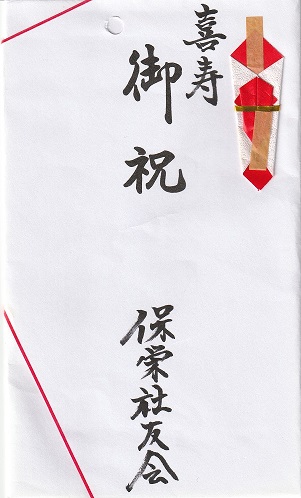 喜寿
御祝
保栄社友会